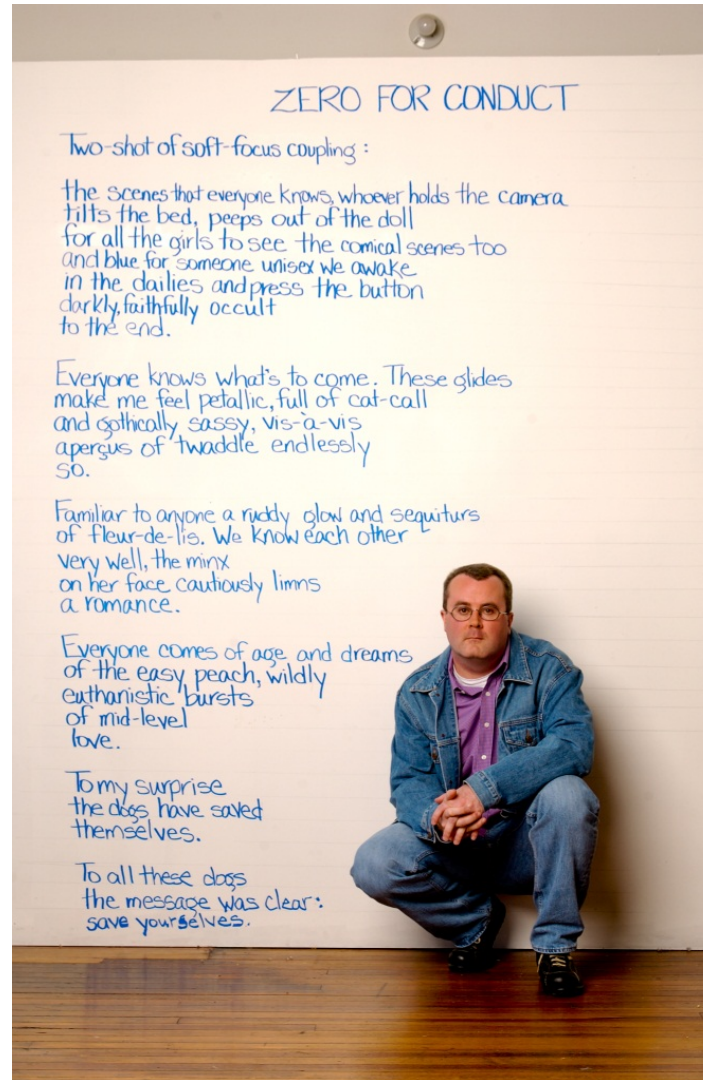 ZERO FOR CONDUCT
Two-shot of soft-focus coupling:
the scenes that everyone knows, whoever holds the camera
tilts the bed, peeps out of the doll
for all the girls to see the comical scenes too
and blue for someone unisex we awake
in the dailies and press the button
darkly, faithfully occult
to the end.
Everyone knows what's to come. These glides
make me feel petallic, full of cat-call
and gothically sassy, vis-à-vis
aperçus of twaddle endlessly
so.
Familiar to anyone a ruddy glow and sequiturs
of fleur-de-lis. We know each other
very well, the minx
on her face cautiously limns
a romance.
Everyone comes of age and dreams
of the easy peach, wildly
euthanistic bursts
of mid-level
love.
To my surprise
the dogs have saved
themselves.
To all these dogs
the message was clear:
save yourselves.